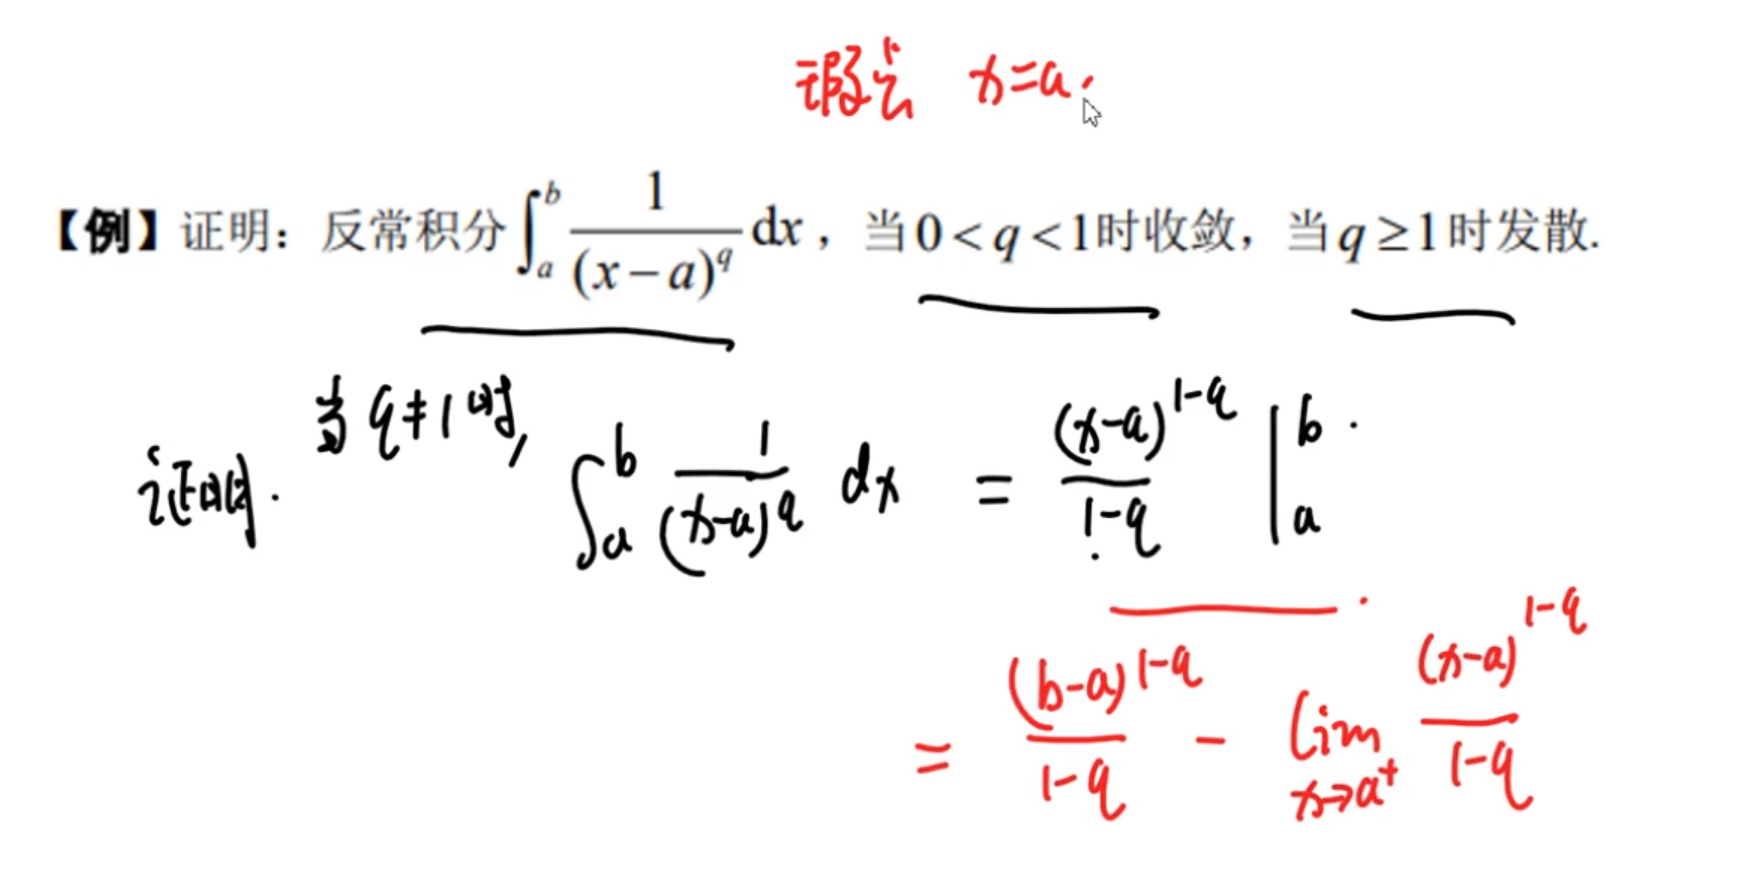 瑕点 x=a.
【例】证明：反常积分∫_a^b 1/(x−a)^q dx，当0<q<1时收敛，当q≥1时发散.
当q≠1时,
证明. ∫_a^b 1/(x-a)^q dx = (x-a)^{1-q}/(1-q) |_a^b
= (b-a)^{1-q}/(1-q) - lim_{x→a⁺} (x-a)^{1-q}/(1-q)